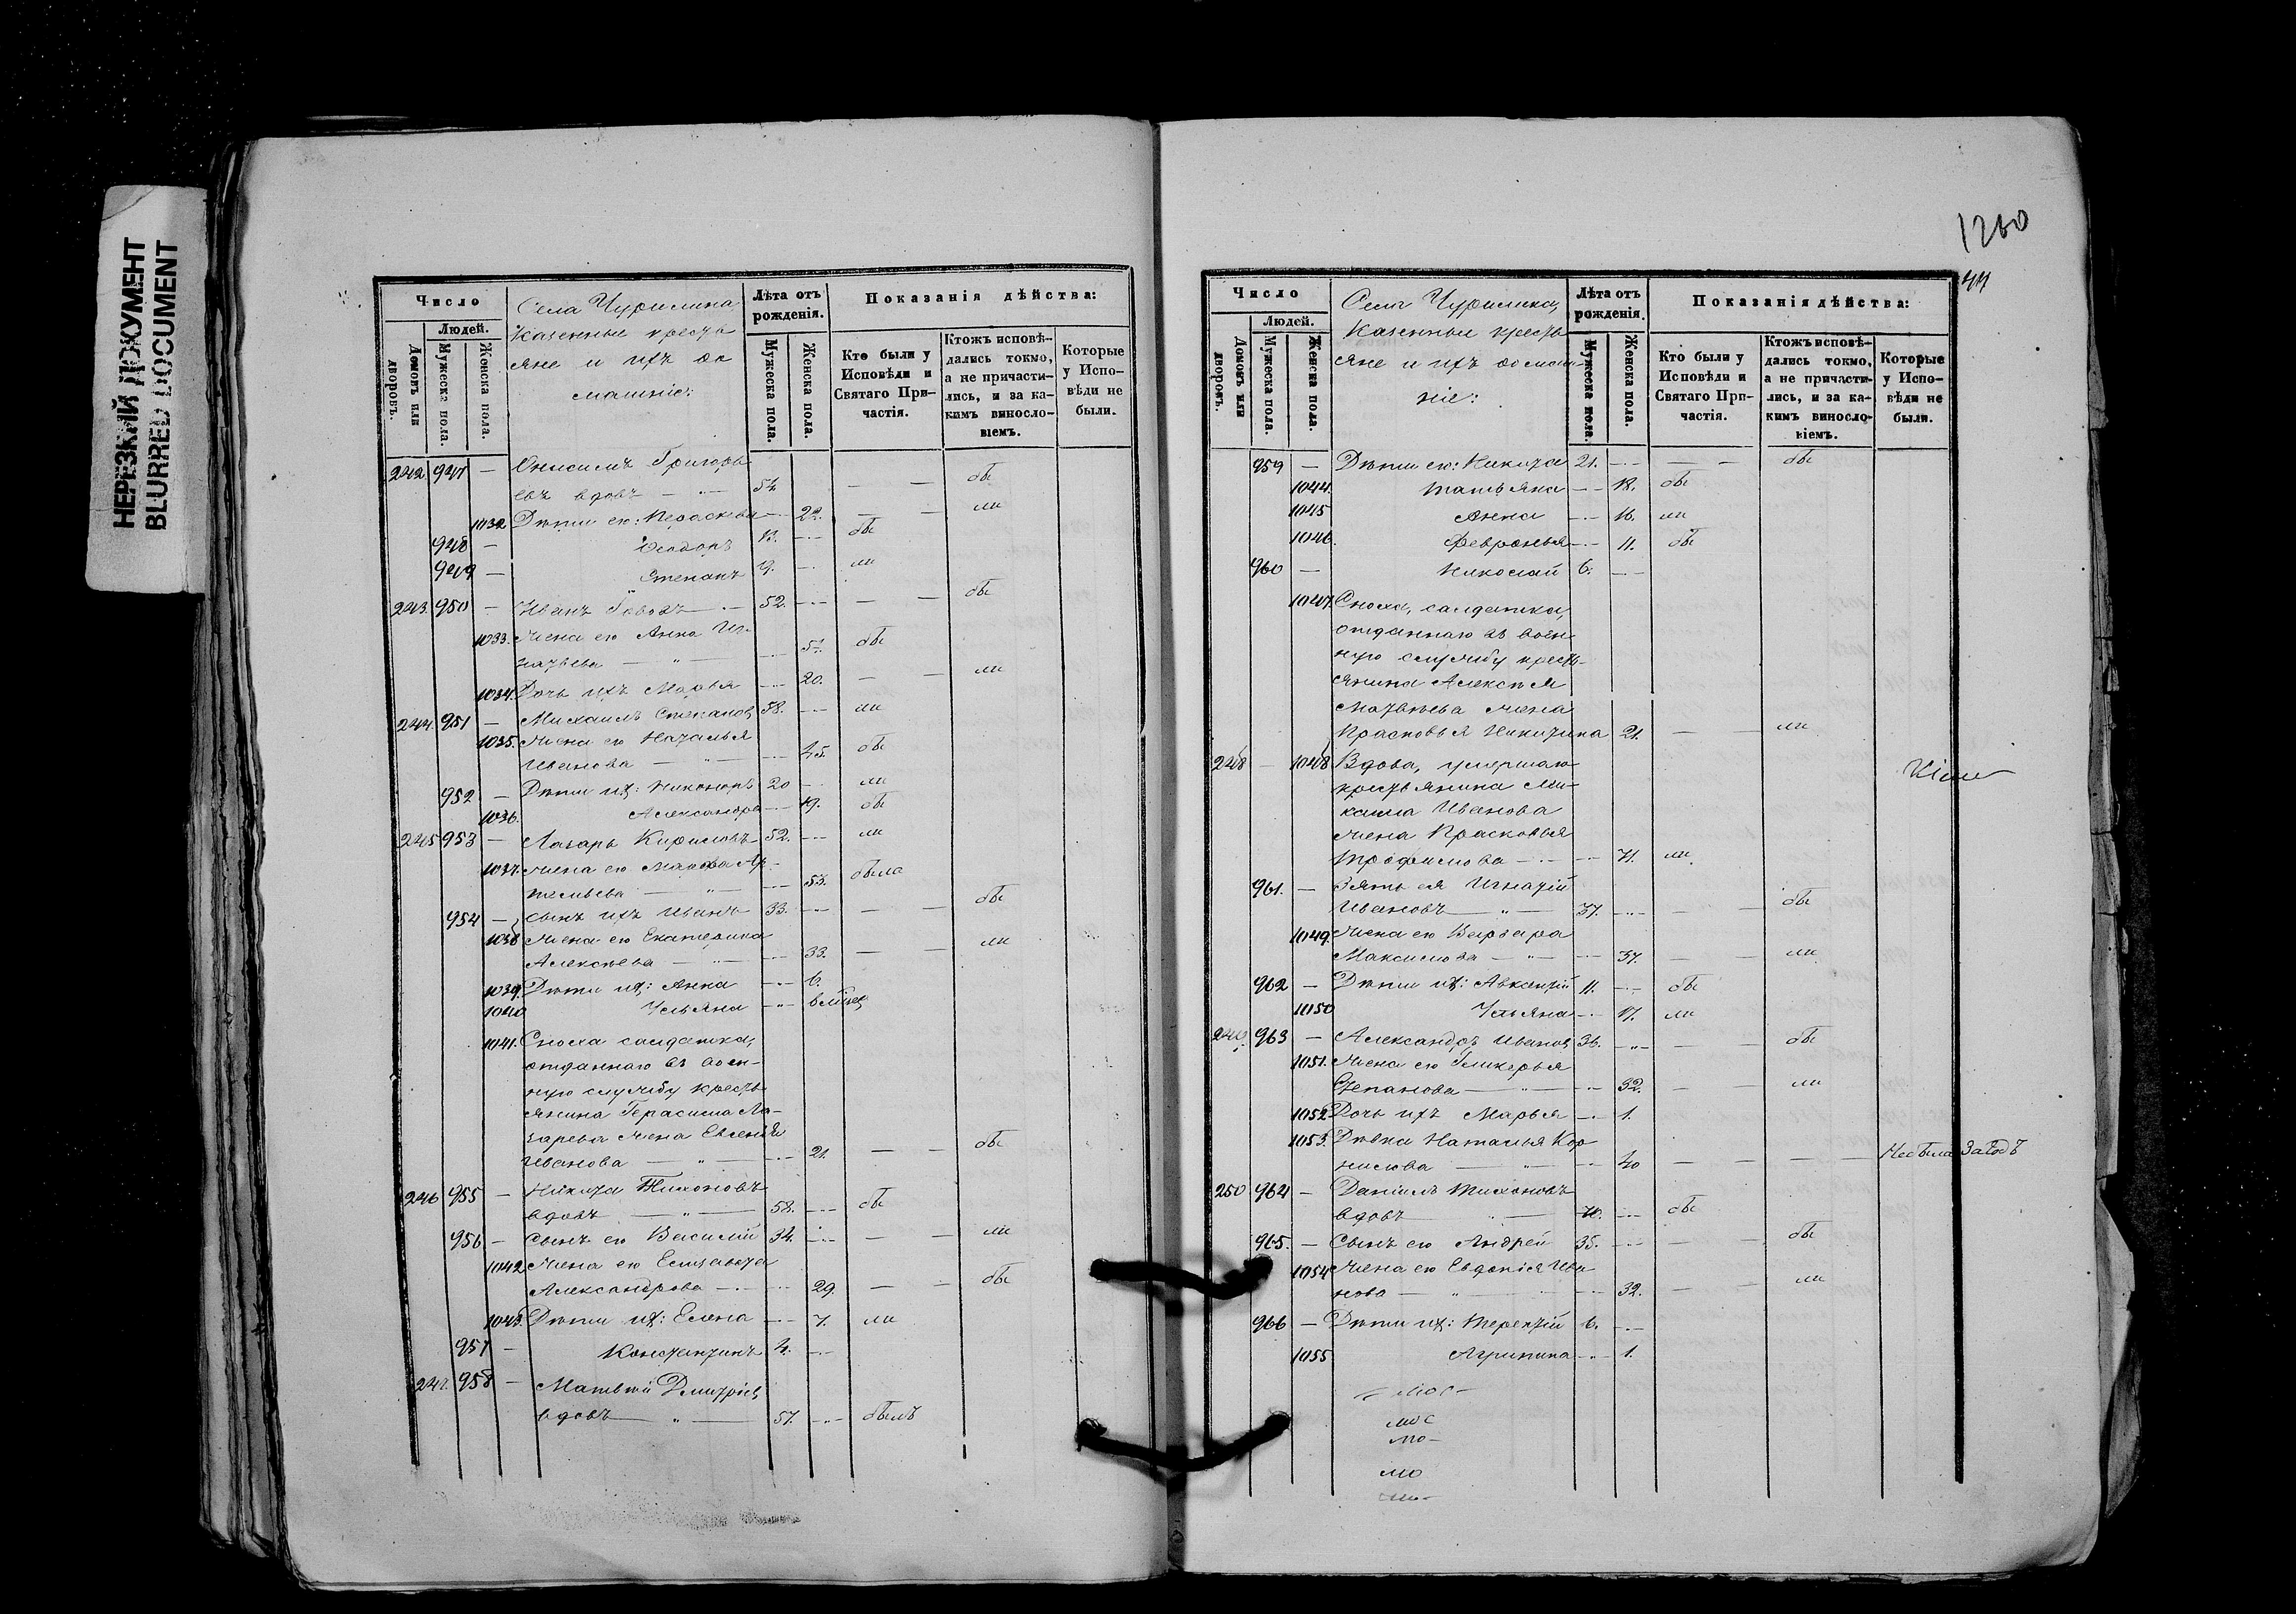 НЕРЕЗКИЙ ДОКУМЕНТ
BLURRED DOCUMENT
Число
Людей.
Домовъ или дворовъ.
Мужеска пола.
Женска пола.
Села Чурилина,
казенные кресть
яне и ихъ до
машніе:
Лѣта отъ рожденія.
Мужеска пола.
Женска пола.
Показанія дѣйства:
Кто были у Исповѣди и Святаго Причастія.
Ктожъ исповѣдались токмо, а не причастились, и за какимъ винословіемъ.
Которые у Исповѣди не были.
242 947 — Онисимъ Григорь
евъ вдовъ — „ — 54 — — бы
1032 Дѣти его: Параскева 22. — — ли
948 — Ѳеодоръ 13. бы
949 — Степанъ 19. ли
243. 950 — Иванъ 52. — — бы
1033. Жена его Анна Иг-
натьева — „ — 57. бы
1034. Дочь ихъ Марья 20. — — ли
244. 951 — Михаилъ Степановъ 58. ли
1035. Жена его Наталья
Иванова — „ — 45. бы
952 — Дѣти ихъ: Никоноръ 20 ли
1036. Александра 19. бы
245 953 — Лазарь Кириловъ 52. ли
1037. Жена его Марѳа Ар-
темьева — „ — 53. была
954 — Сынъ ихъ Иванъ 33. — — бы
1038 Жена его Екатерина
Алексѣева — „ — 33. — — ли
1039. Дѣти ихъ: Анна 6.
1040 Ульяна 6 мѣсяц
1041. Сноха солдатка,
отданнаго въ воен-
ную службу кресть
янина Герасима Ла-
зарева жена Евгенія
Иванова — „ — 21. — — бы
246 955 — Никита Тихоновъ
вдовъ — „ — 58. бы
956 — Сынъ его Василій 34. — — ли
1042 Жена его Елизавета
Александрова — 29. — — бы
1043. Дѣти ихъ: Елена 7. ли
957 — Константинъ 4.
247. 958 — Матвѣй Дмитріев
вдовъ — „ — 57. былъ
1260
44
Число
Людей.
Домовъ или дворовъ.
Мужеска пола.
Женска пола.
Села Чурилина,
казенные кресть
яне и ихъ домаш-
ніе:
Лѣта отъ рожденія.
Мужеска пола.
Женска пола.
Показанія дѣйства:
Кто были у Исповѣди и Святаго Причастія.
Ктожъ исповѣдались токмо, а не причастились, и за какимъ винословіемъ.
Которые у Исповѣди не были.
959 — Дѣти его: Никита 21. — — бы
1044. Татьяна 18. бы
1045 Анна 16. ли
1046. Февронья 11. бы
960 — Николай 6.
1047. Сноха, солдатка,
отданнаго въ воен-
ную службу кресть-
янина Алексѣя
Матвѣева жена
Прасковья Никитина 21. — — ли
248 — 1048 Вдова, умершаго
крестьянина Ми-
хаила Иванова
жена Прасковья
Трофимова — 71. ли
961. — Зять ея Игнатій
Ивановъ — „ — 37. — — бы
1049. Жена его Варвара
Максимова — „ — 37. — — ли
962 — Дѣти ихъ: Авксентій 11. бы
1050 Ульяна 17. ли
249. 963 — Александръ Иванов 36. — бы
1051. Жена его Гликерья
Степанова — „ — 32. — — ли
1052 Дочь ихъ Марья 1.
1053. Дѣвка Наталья Кор
нилова — „ — 40 — — — Не была За годъ
250 964 — Даніилъ Тихоновъ
вдовъ — 70. бы
965. — Сынъ его Андрей 35. — — бы
1054 Жена его Евдокія Ива
нова — „ — 32. — — ли
966 — Дѣти ихъ: Терентій 6.
1055 Агрипина 1.